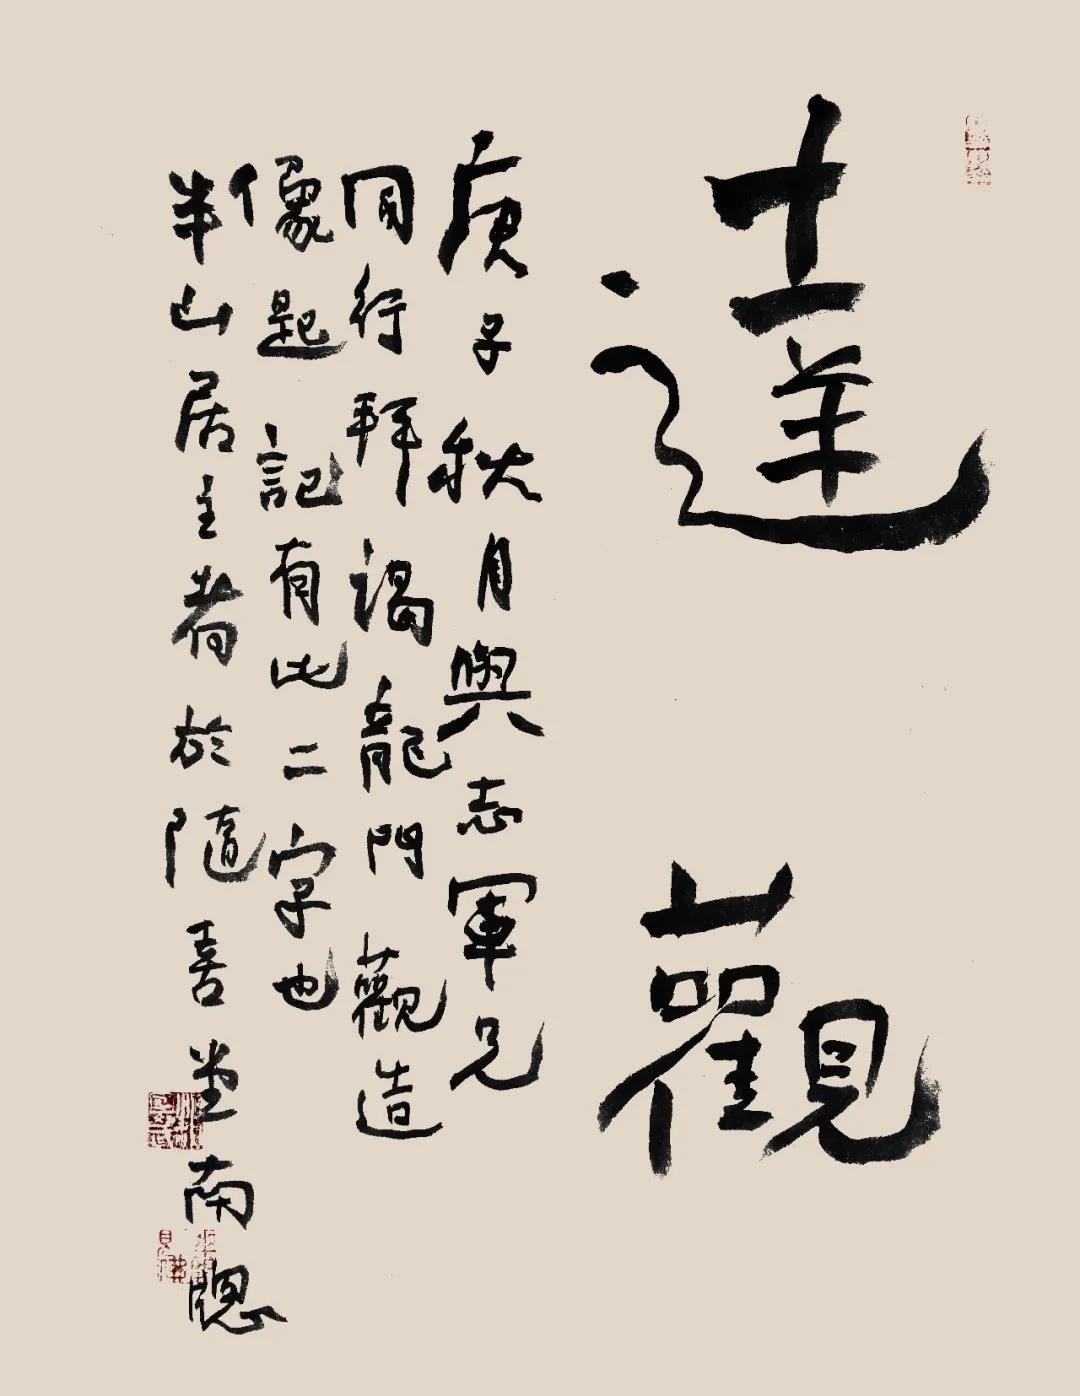 達觀
庚子秋月與志軍兄
同行拜謁龍門觀造
像題記有此二字也
半山居主者於隨喜堂南窗